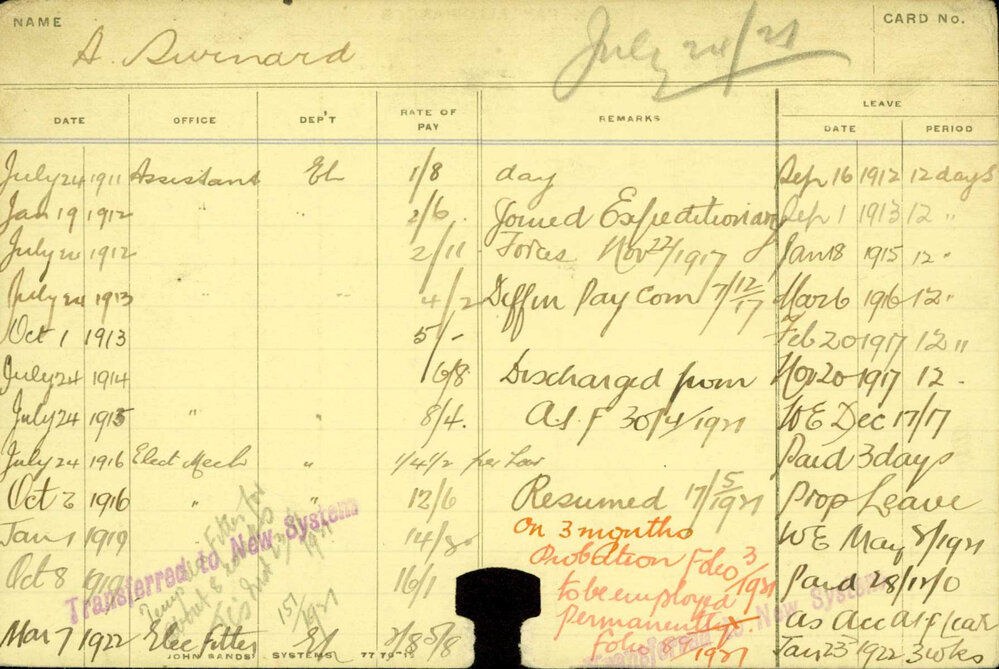 NAME
A. Burnard
July 24/21
CARD No.
DATE OFFICE DEP'T RATE OF PAY REMARKS LEAVE
DATE PERIOD
July 24 1911 Assistant El 1/8 day Sep 16 1912 12 days
Jan 19 1912 2/6. Joined Expeditionary Sep 1 1913 12 "
July 1912 " 2/11 Forces Nov 22/1917 Jan 18 1915 12 "
July 24 1913 " 4/2 Diff in Pay Com 7/12/17 Mar 6 1916 12 "
Oct 1 1913 5/- Feb 20 1917 12 "
July 24 1914 6/8 Discharged from Nov 20 1917 12 "
July 24 1915 " " 8/4. A.I.F 30/4/1921 WE Dec 17/17
July 24 1916 Elect Mech " 1/4½ per hour Paid 3 days
Oct 2 1916 " " 12/6 Resumed 17/5/1921 Prop Leave
Jan 1 1919 14/ On 3 months WE May 8/1921
Oct 8 1919 16/1 Probation Folio 3/1921 Paid 28/12/0
to be employed as Acc AIF leave
Permanently
Mar 7 1922 Elec Fitter El 5/8 Folio 1921 Jan 23 1922 3 wks
Transferred to New System
Temp Fitter for
151/1921
Transferred to New System
JOHN SANDS' SYSTEMS